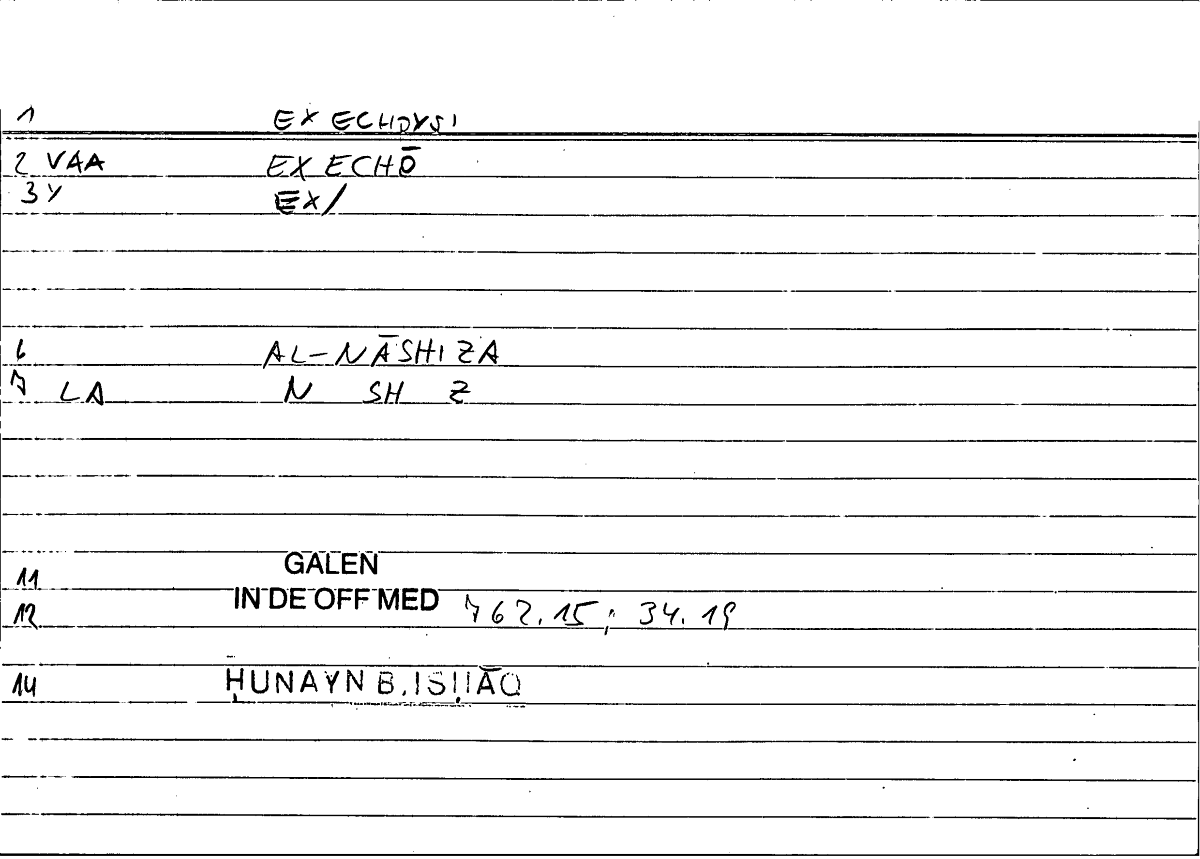 1 EX ECHOYSI
2 VAA EX ECHŌ
3 Y EX/
6 AL-NĀSHIZA
7 LA N SH Z
11 GALEN
12 IN DE OFF MED 762.15; 34.19
14 ḤUNAYN B. ISḤĀQ